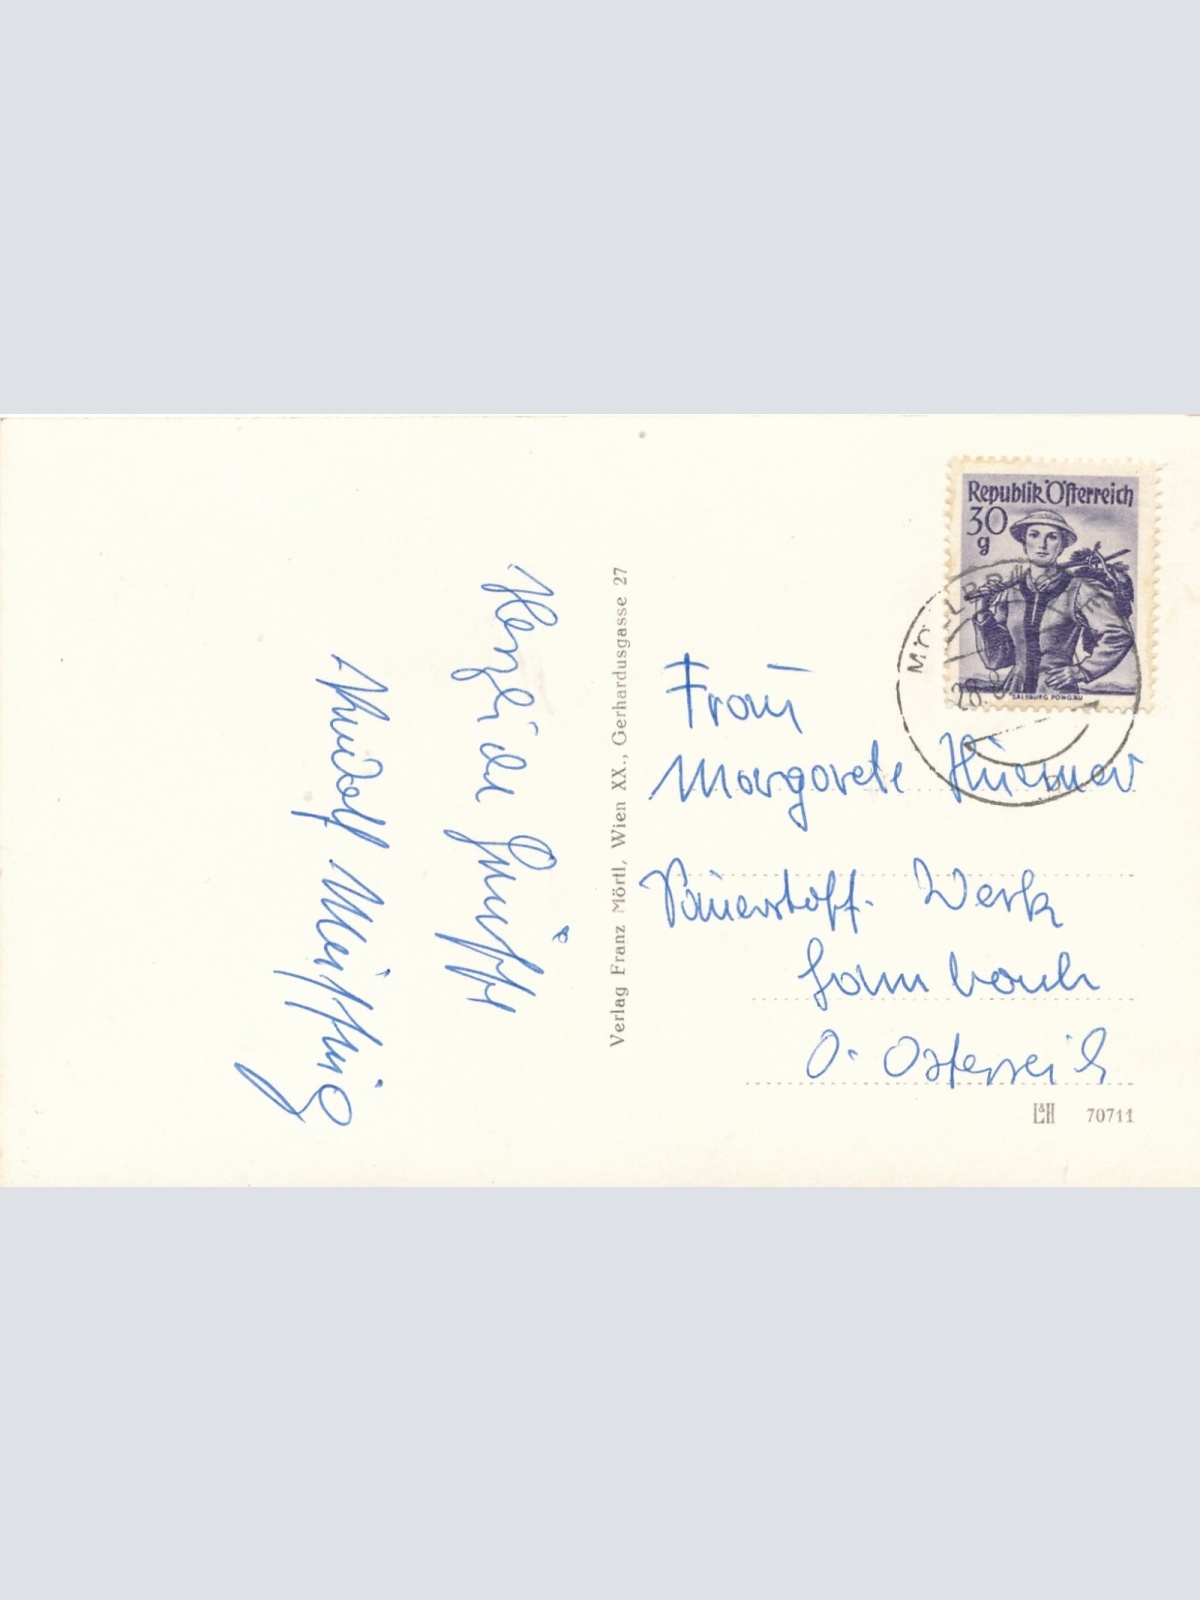 Herzliche Grüße
Rudolf
Verlag Franz Mörtl, Wien XX., Gerhardusgasse 27
Republik Österreich
30
g
SALZBURG PONGAU
28. 8
Frau
Margarete
Sauerstoff. Werk
Lambach
O. Österreich
L&H 70711